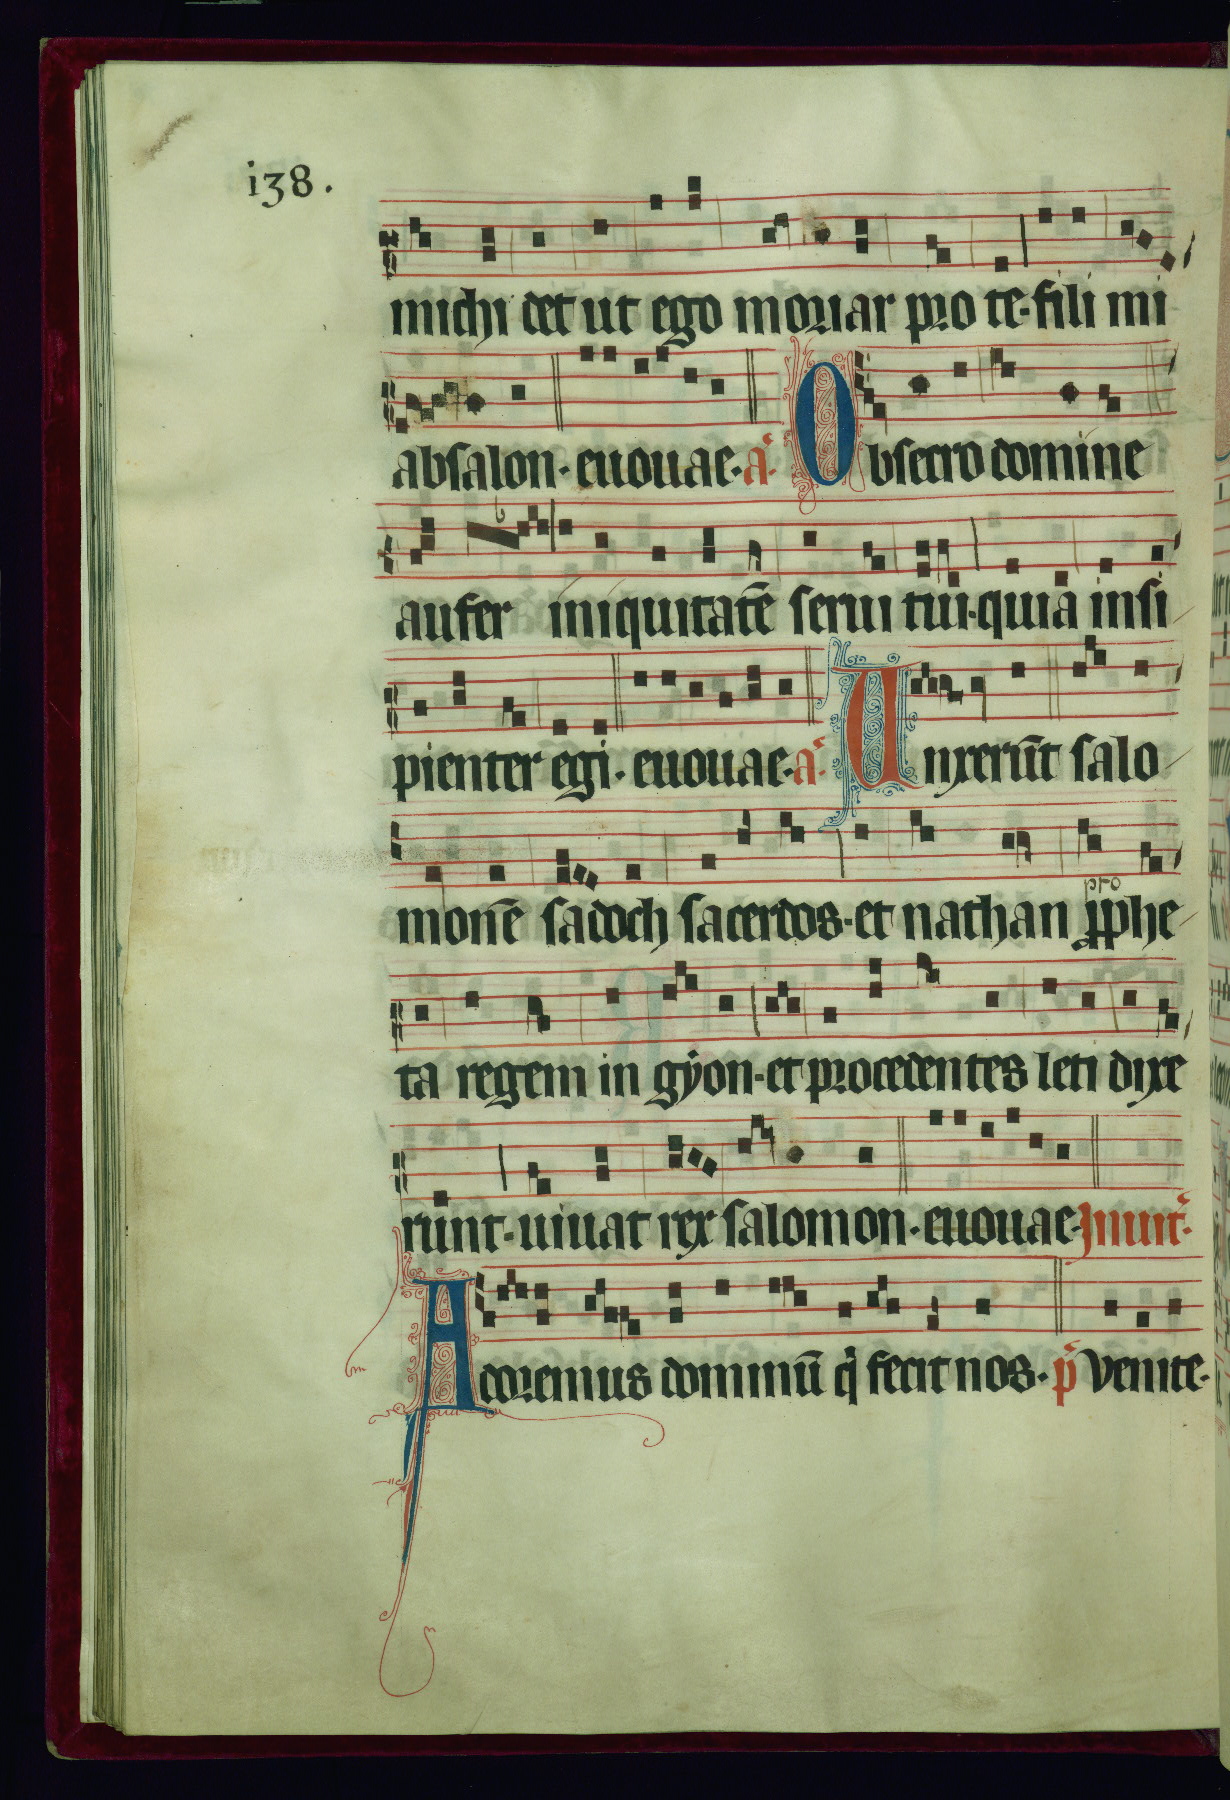 i38.
michi det ut ego moriar pro te. fili mi
absalon. euouae. a͛. Obsecro domine
aufer iniquitatē serui tui. quia insi
pienter egi. euouae. a͛. Unxerūt salo
monē sadoch sacerdos. et nathan ꝓphe
pro
ta regem in gyon. et procedentes leti dixe
runt. uiuat rex salomon. euouae. Inuit͛.
Adoremus dominū qͥ fecit nos. p͛ Venite.